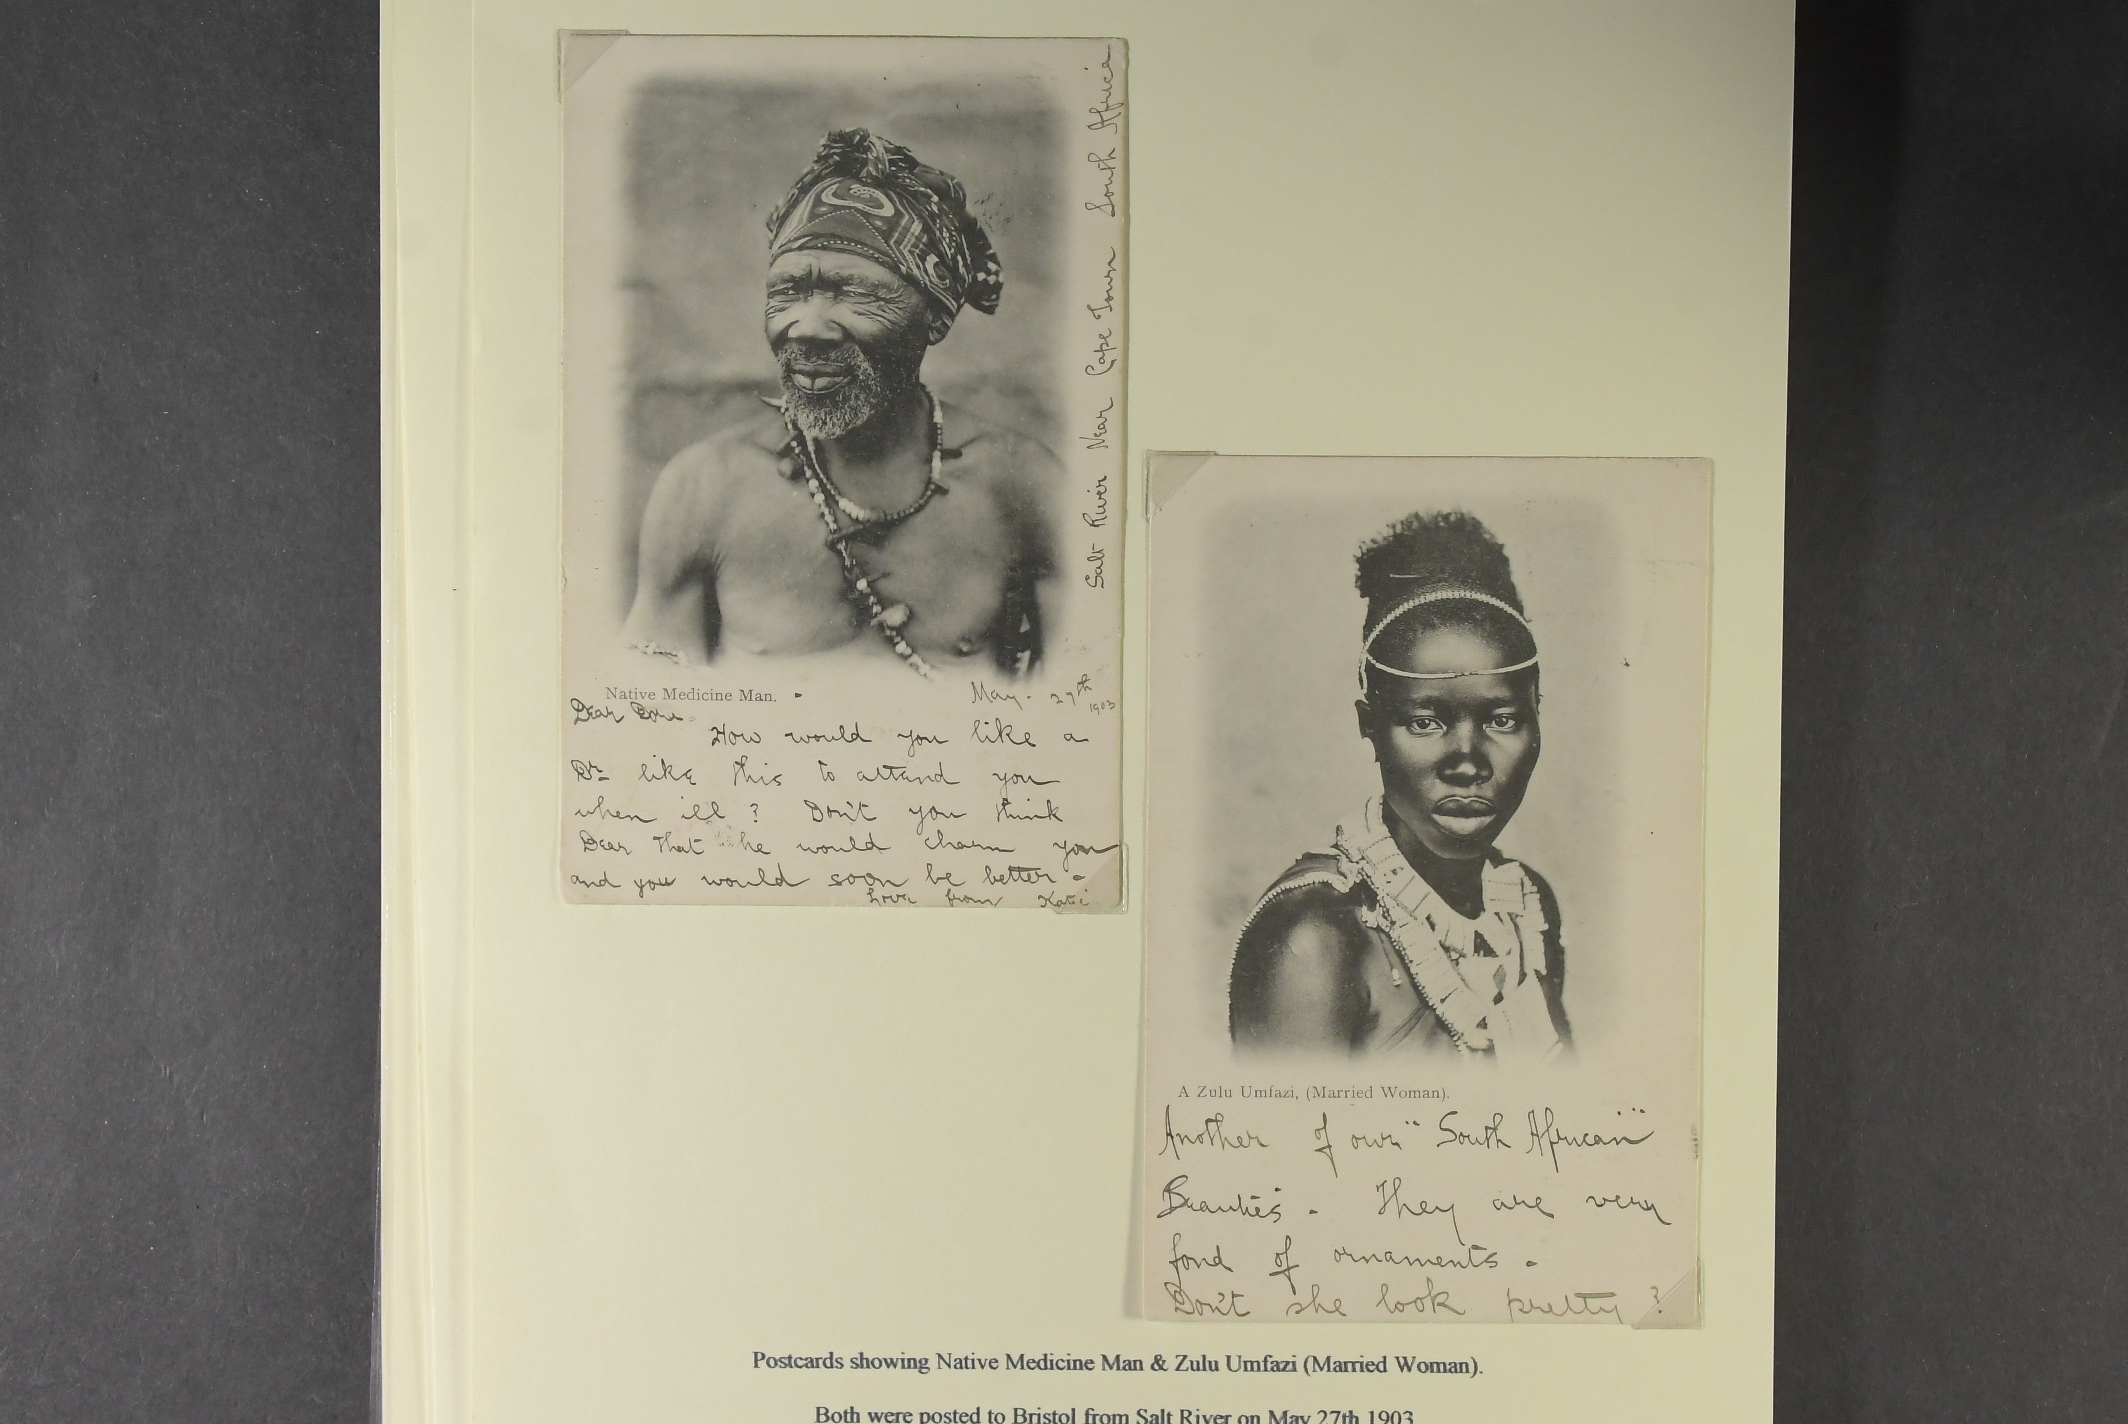 Salt River Near Cape Town South Africa
Native Medicine Man.
May. 27th 1903
Dear
How would you like a
Dr like this to attend you
when ill ? Don't you think
Dear that he would charm you
and you would soon be better.
Love from Katie
A Zulu Umfazi, (Married Woman).
Another of our "South African"
Beauties. They are very
fond of ornaments.
Don't she look pretty ?
Postcards showing Native Medicine Man & Zulu Umfazi (Married Woman).
Both were posted to Bristol from Salt River on May 27th 1903